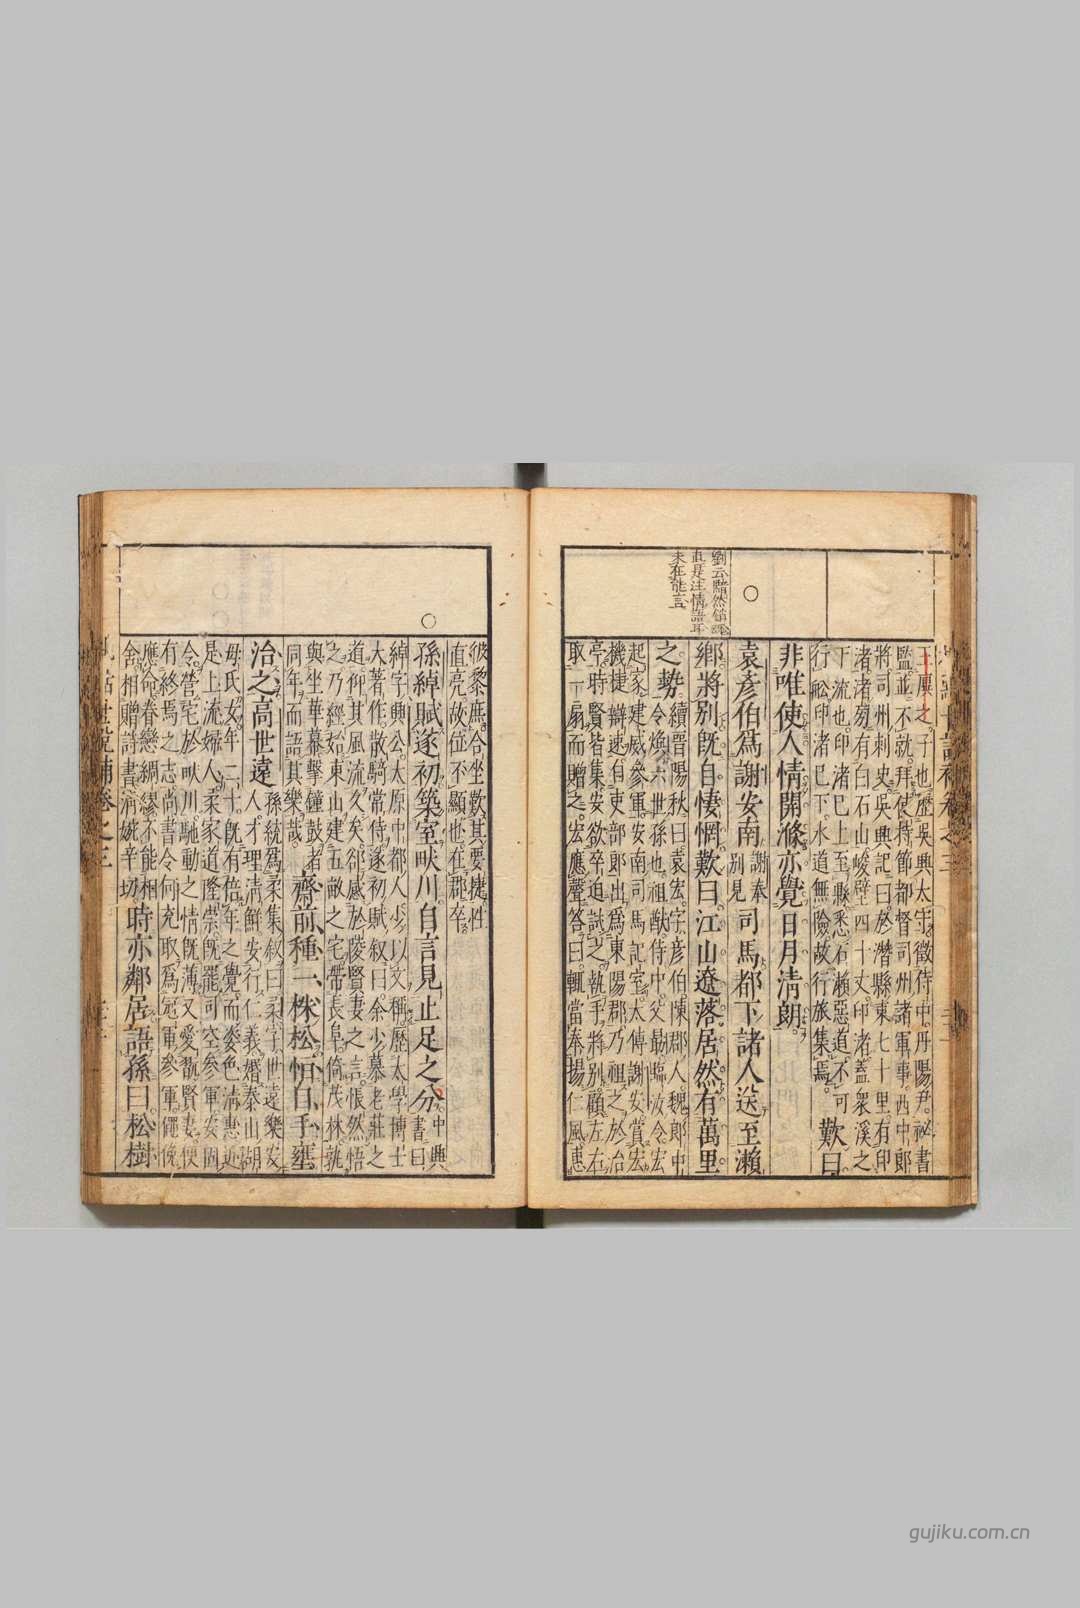 王廙之子也歷吳興太守徵侍中丹陽尹祕書
監並不就拜使持節都督司州諸軍事西中郎
將司州刺史吳興記曰於潛縣東七十里有印
渚渚傍有白石山峻壁四十丈印渚蓋衆溪之
下流也印渚巳上至縣悉石瀨惡道不可
行船印渚巳下水道無險故行旅集焉
歎曰
非唯使人情開滌亦覺日月清朗
袁彥伯爲謝安南
謝奉
別見
司馬都下諸人送至瀨
鄉將別旣自悽惘歎曰江山遼落居然有萬里
之勢
續晉陽秋曰袁宏字彥伯陳郡人魏郎中
令煥六世孫也祖猷侍中父勗臨汝令宏
起家建威參軍安南司馬記室太傅謝安賞宏
機捷辯速自吏部郎出爲東陽郡乃祖之於冶
亭時賢皆集安欲卒迫試之執手將別顧左右
取一扇而贈之宏應聲答曰輒當奉揚仁風惠
劉云黯然銷魂
直是注情語耳
未在能言
彼黎庶合坐歎其要捷性
直亮故位不顯也在郡卒
孫綽賦遂初築室畎川自言見止足之分
中興
書曰
綽字興公太原中都人少以文稱歷太學博士
大著作散騎常侍遂初賦叙曰余少慕老莊之
道仰其風流久矣却感於陵賢妻之言悵然悟
之乃經始東山建五畝之宅帶長阜倚茂林孰
與坐華幕擊鐘鼓者
同年而語其樂哉
齋前種一株松恒自手壅
治之高世遠
孫統爲柔集叙曰柔字世遠樂安
人才理清鮮安行仁義婚泰山胡
母氏女年二十旣有倍年之覺而姿色清惠近
是上流婦人柔家道隆崇旣罷司空參軍安固
令營宅於畎川馳動之情旣薄又愛翫賢妻便
有終焉之志尚書令何充取爲冠軍參軍僶俛
應命眷戀綢繆不能相
舍相贈詩書清婉辛切
時亦鄰居語孫曰松樹
世說補卷之三